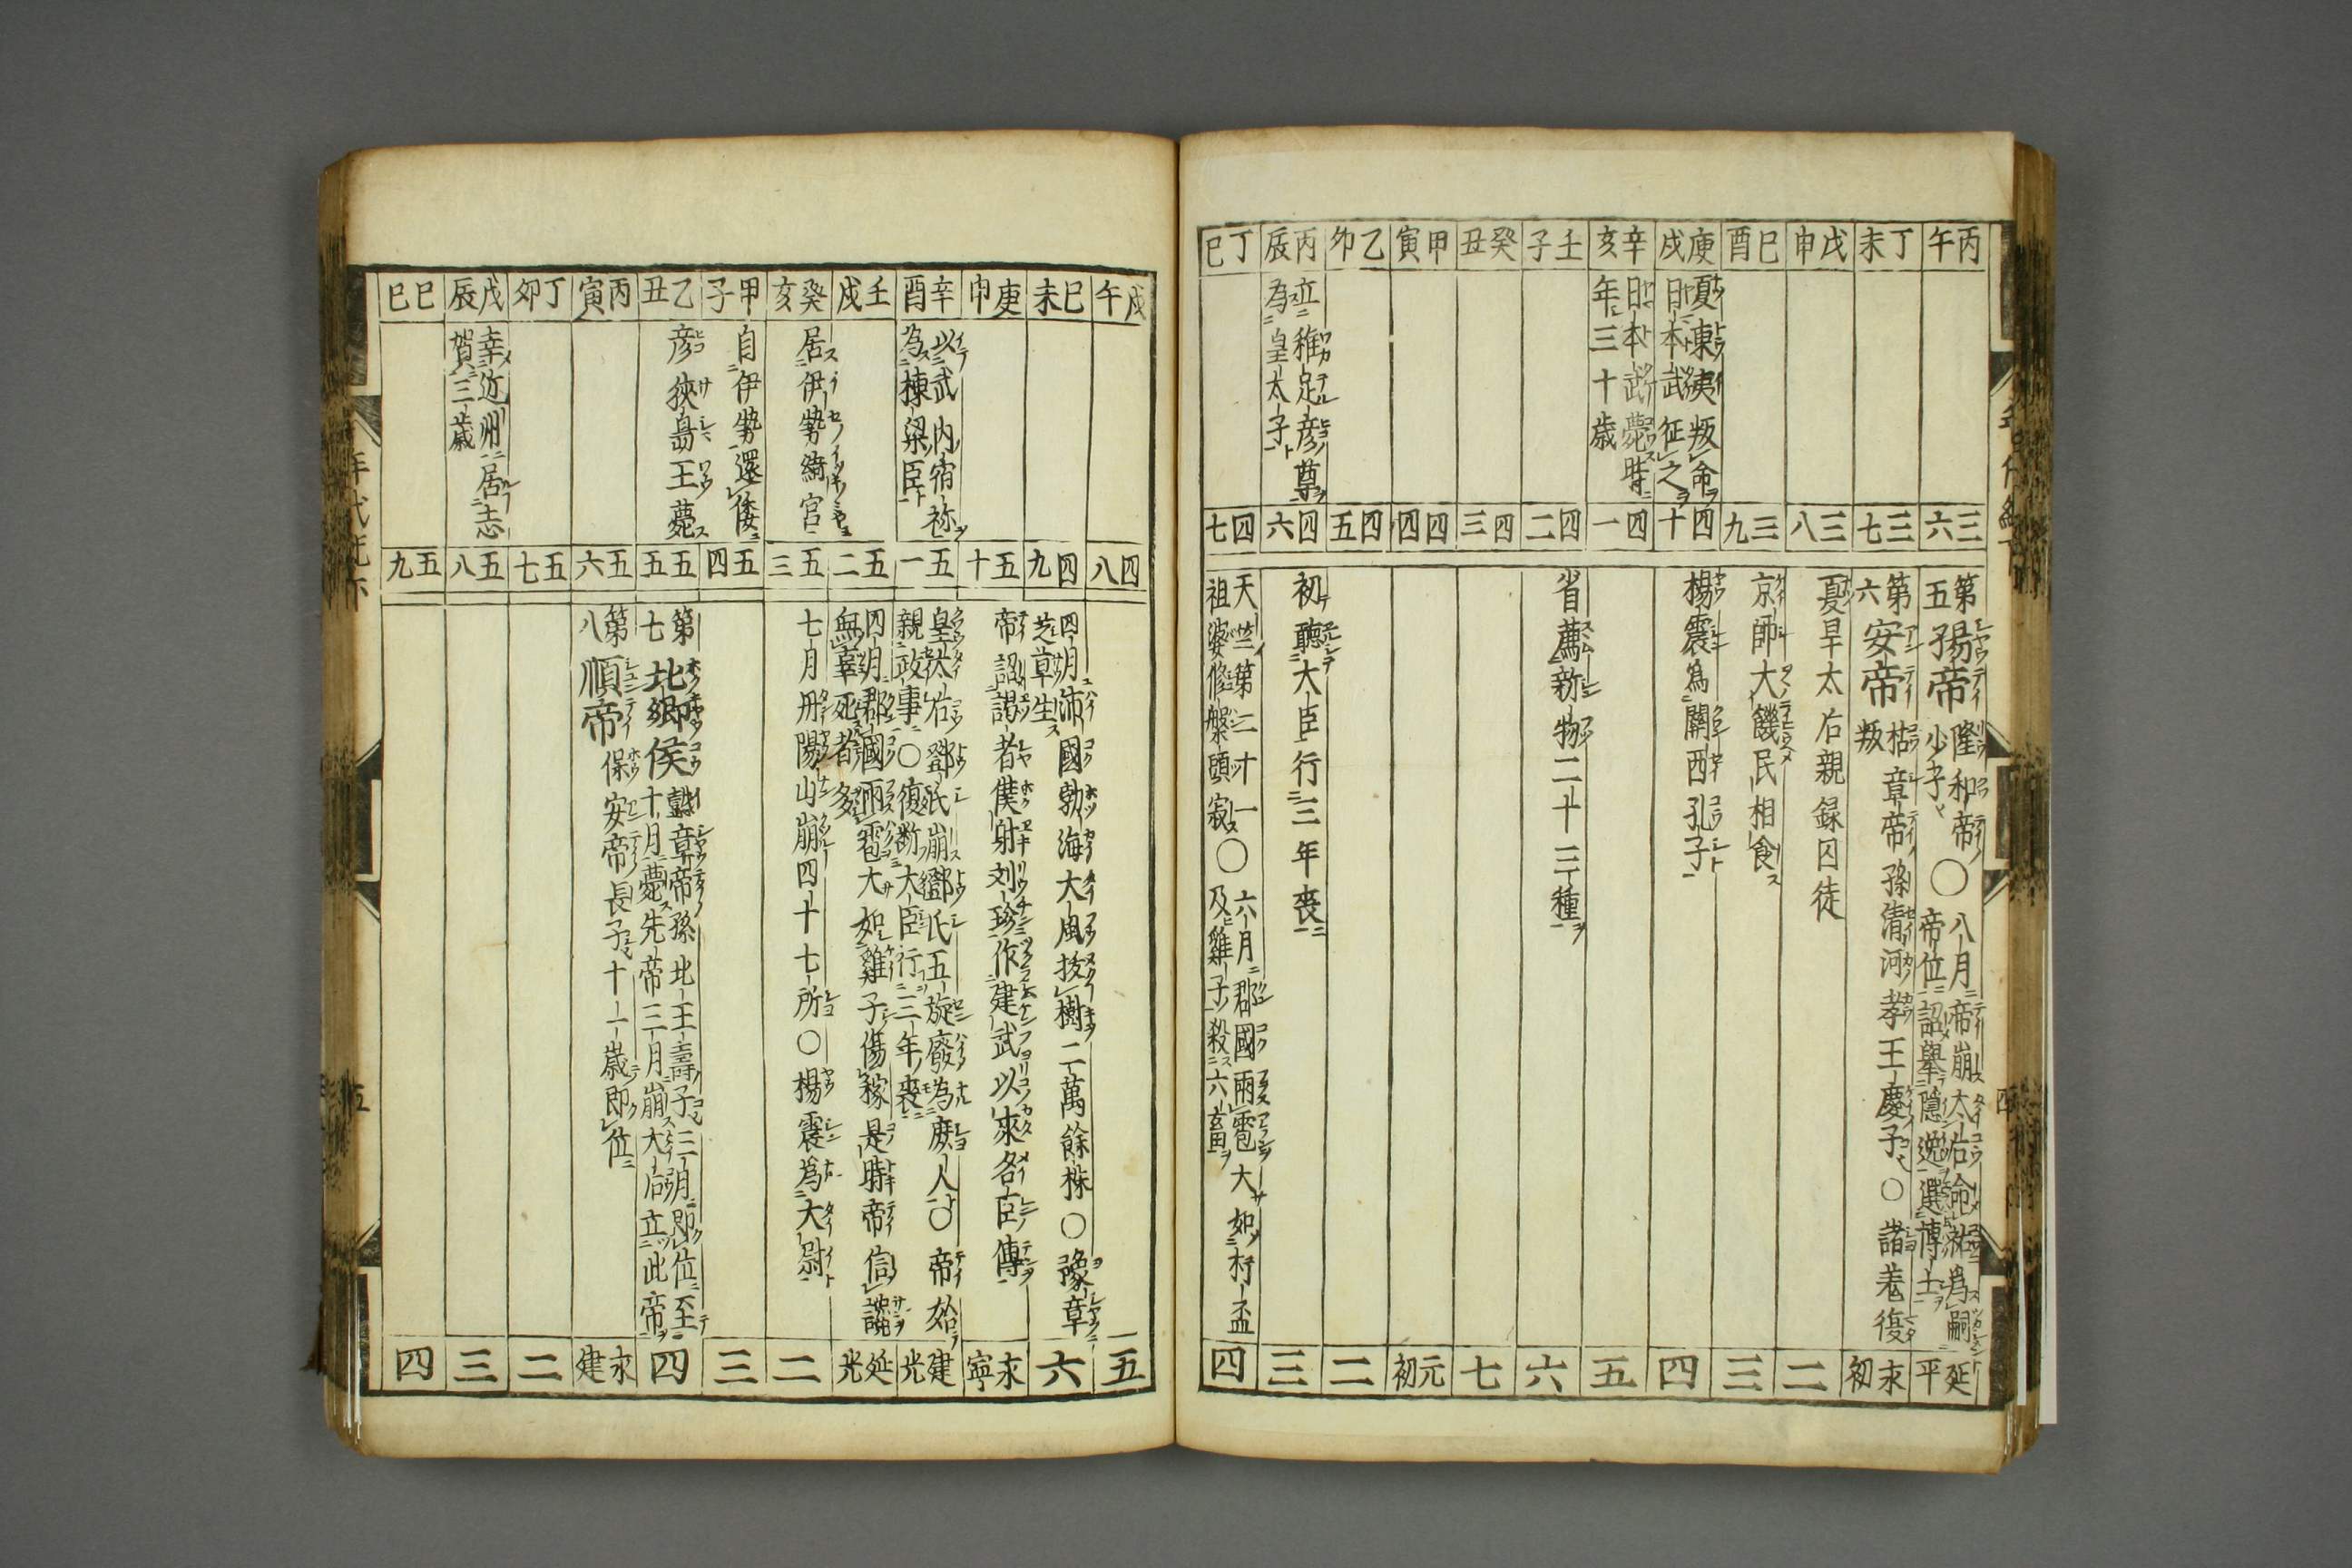 丙午
丁未
戊申
己酉
庚戌
辛亥
壬子
癸丑
甲寅
乙卯
丙辰
丁巳
夏東夷叛命
日本武征之
日本武薨時
年三十歳
立稚足彦尊
為皇太子
三六
三七
三八
三九
四十
四一
四二
四三
四四
四五
四六
四七
第五殤帝
隆和帝
少子
〇八月帝崩太后命祐為嗣
帝位詔擧隠逸選博士
第六安帝
祐章帝孫清河孝王慶子〇諸羌復
叛
夏旱太后親録囚徒
京師大饑民相食
楊震為關西孔子
省薦新物二十三種
初聽大臣行三年喪
天竺第二十一
祖婆修槃頭寂〇
六月郡國雨雹大如杅盃
及雞子殺六畜
延平
永初
二
三
四
五
六
七
元初
二
三
四
戊午
己未
庚申
辛酉
壬戌
癸亥
甲子
乙丑
丙寅
丁卯
戊辰
己巳
以武内宿祢
為棟梁臣
居伊勢綺宮
自伊勢還倭
彦狭嶋王薨
幸近州居志
賀三歳
四八
四九
五十
五一
五二
五三
五四
五五
五六
五七
五八
五九
四月沛國勃海大風抜樹二萬餘株〇豫章
芝草生
帝詔謁者僕射刘珍作建武以來名臣傳
皇太后鄧氏崩鄧氏五旋廢為庶人〇帝始
親政事〇復断大臣行三年喪
四月郡國雨雹大如雞子傷稼是時帝信讒
無辜死者多
七月丹陽山崩四十七所〇楊震為大尉
第七北郷侯
懿章帝孫北王壽子三月即位至
十月薨先帝三月崩大后立此帝
第八順帝
保安帝長子十一歳即位
五
六
永寧
建光
延光
二
三
四
永建
二
三
四
年代記下
五